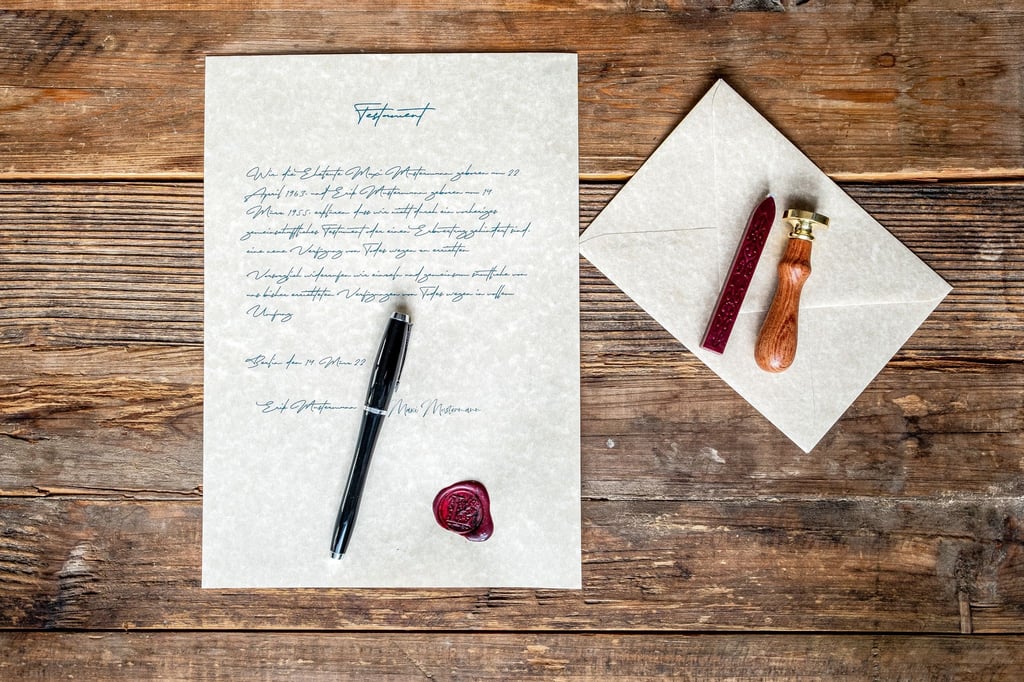 Testament
Wir die Eheleute Maxi Mustermann geboren am 22
April 1963 und Erik Mustermann geboren am 14
März 1955 erklären dass wir nicht durch ein vorheriges
gemeinschaftliches Testament oder einen Erbvertrag gehindert sind
eine neue Verfügung von Todes wegen zu errichten
Vorsorglich widerrufen wir einzeln und gemeinsam sämtliche von
uns bisher errichteten Verfügungen von Todes wegen in vollem
Umfang
Berlin den 14 März 22
Erik Mustermann Maxi Mustermann